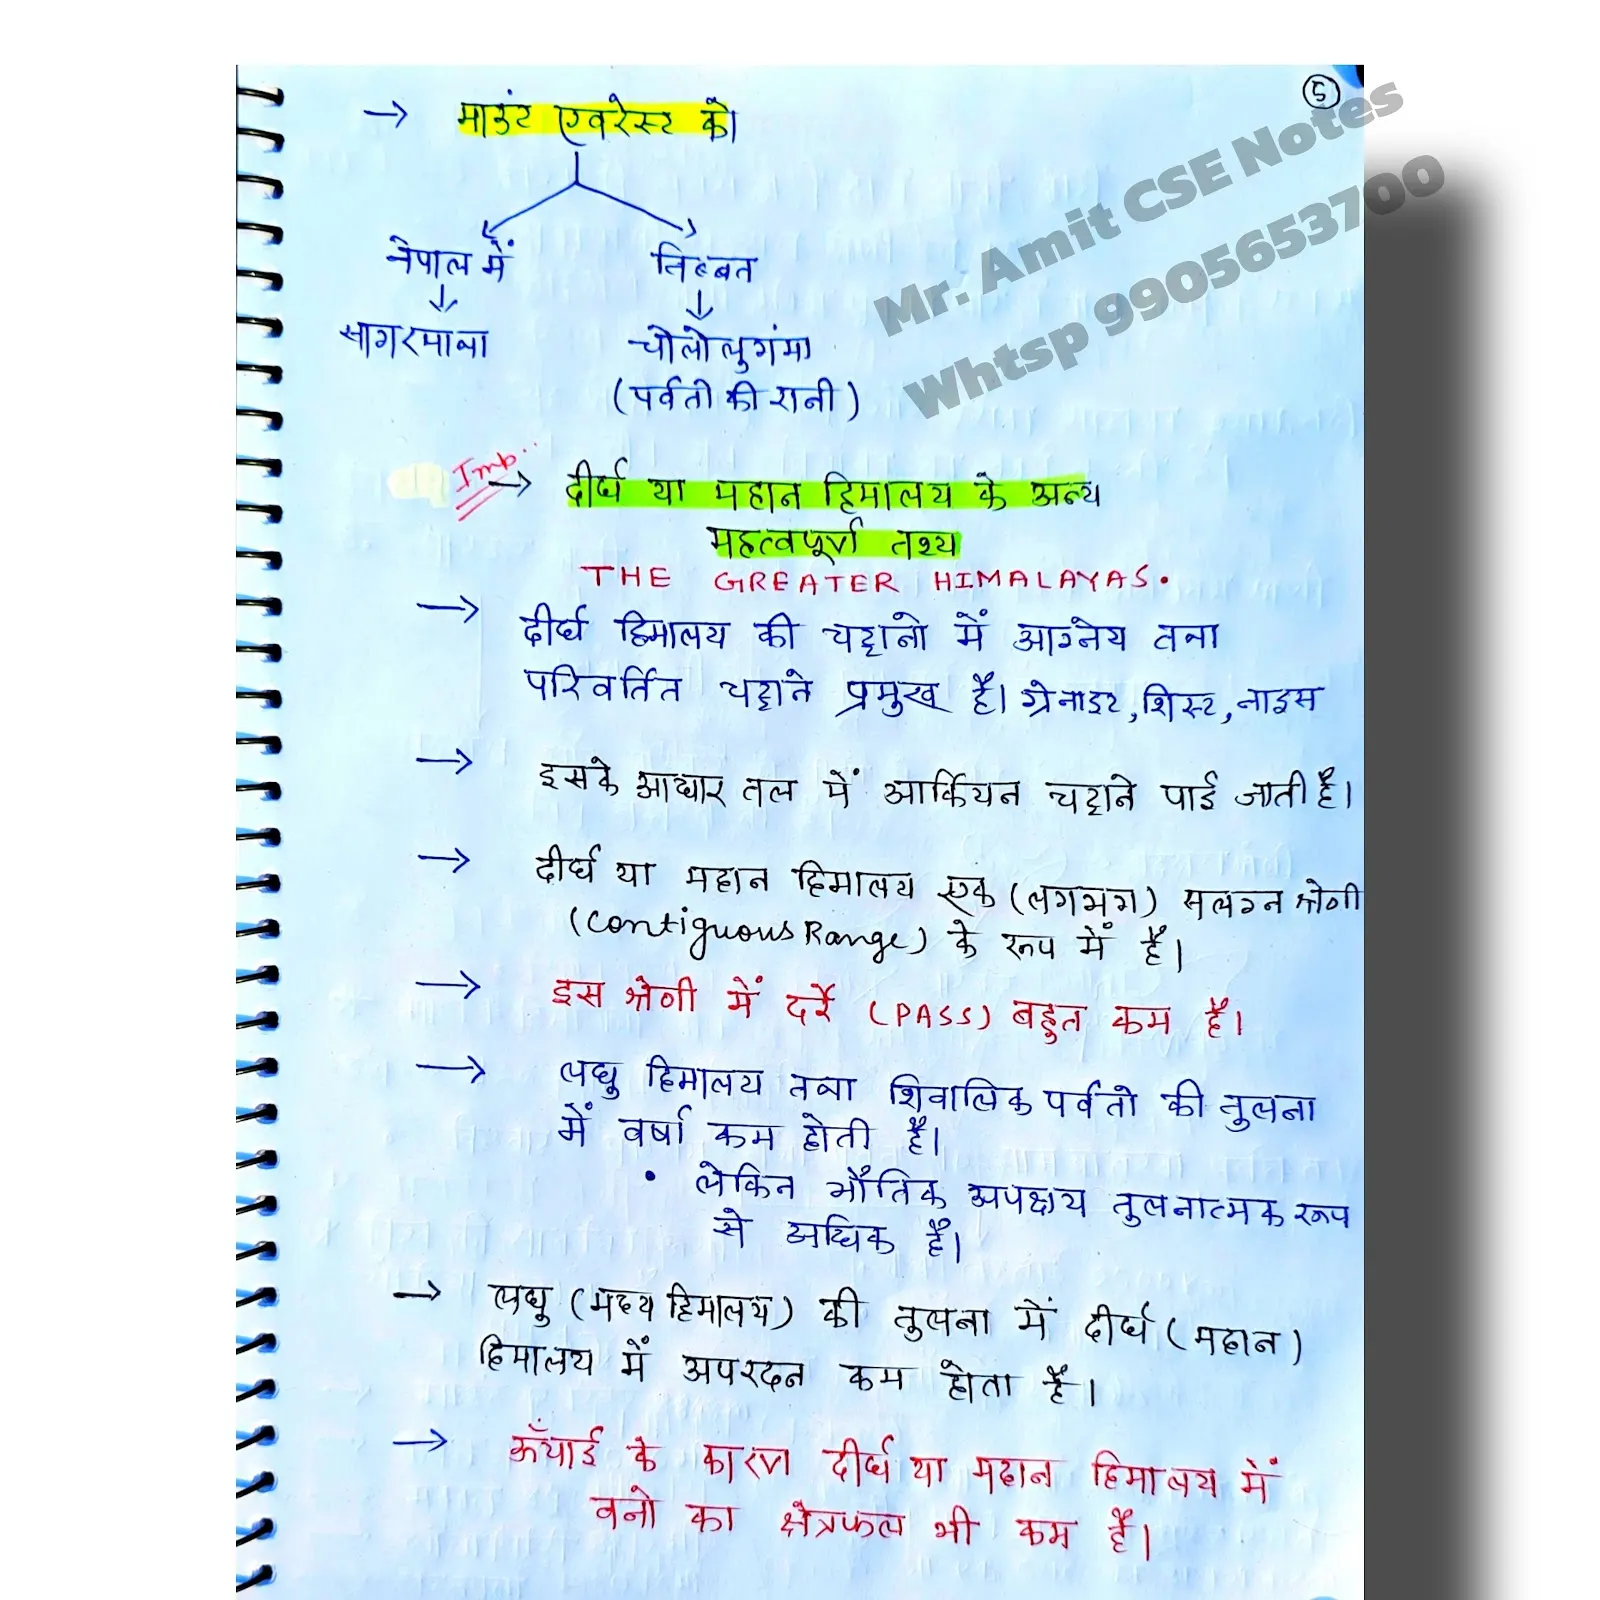 5
→ माउंट एवरेस्ट को
नेपाल में तिब्बत
↓ ↓
सागरमाथा चोलोलुगंमा
(पर्वतो की रानी)
Mr. Amit CSE Notes
Whtsp 9905653700
Imp..
→ दीर्घ या महान हिमालय के अन्य
महत्वपूर्ण तथ्य
THE GREATER HIMALAYAS.
→ दीर्घ हिमालय की चट्टानो में आग्नेय तथा
परिवर्तित चट्टाने प्रमुख है। ग्रेनाइट, शिस्ट, नाइस
→ इसके आधार तल में आर्कियन चट्टाने पाई जाती है।
→ दीर्घ या महान हिमालय एक (लगभग) सलग्न श्रेणी
(Contiguous Range) के रूप में है।
→ इस श्रेणी में दर्रे (PASS) बहुत कम है।
→ लघु हिमालय तथा शिवालिक पर्वतो की तुलना
में वर्षा कम होती है।
• लेकिन भौतिक अपक्षय तुलनात्मक रूप
से अधिक है।
→ लघु (मध्य हिमालय) की तुलना में दीर्घ (महान)
हिमालय में अपरदन कम होता है।
→ ऊँचाई के कारण दीर्घ या महान हिमालय में
वनो का क्षेत्रफल भी कम है।